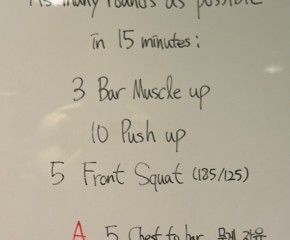 As many rounds as possible
in 15 minutes:
3 Bar Muscle up
10 Push up
5 Front Squat (185/125)
A 5 Chest to bar 무게 자유